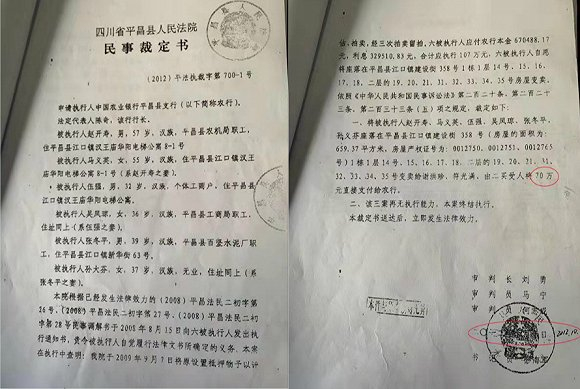 四川省平昌县人民法院
民事裁定书
(2012)平法执裁字第700-1号
申请执行人中国农业银行平昌县支行(以下简称农行)。
法定代表人陈奇,该行行长。
被执行人赵开寿,男,57岁,汉族,平昌县农机局职工,
住平昌县江口镇汉王庙华阳电梯公寓8-1号
被执行人马义英,女,55岁,汉族,住平昌县江口镇汉王
庙华阳电梯公寓8-1号(系赵开寿之妻)。
被执行人伍强,男,32岁,汉族,个体工商户,住平昌县
江口镇汉王庙华阳电梯公寓。
被执行人吴凤琼,女,36岁,汉族,平昌县工商局职工,
住址同上(系伍强之妻)。
被执行人张冬平,男,39岁,汉族,平昌县百坚水泥厂职
工,住平昌县江口镇新华街63号。
被执行人孙大芬,女,37岁,汉族,无业,住址同上(系
张冬平之妻)。
本院根据已经发生法律效力的(2008)平昌法民二初字第
26号、(2008)平昌法民二初字第27号、(2008)平昌法民二
初字第28号民事调解书于2008年8月15日向六被执行人发出执
行通知书,责令被执行人自觉履行法律文书所确定的义务。本案
在执行中查明:我院于2009年9月7日将原设置抵押物予以评
估、拍卖,经三次拍卖留拍,六被执行人应付农行本金670488.17
元,利息329510.83元,合计应执行107万元,六被执行人自愿
将座落在平昌县江口镇建设街358号1栋1层14号、15、16、
17、18、二层的19、20、21、31、32、33、34、35号房屋变卖。
依照《中华人民共和国民事诉讼法》第二百二十条、第二百二十
三条、第二百三十三条(五)项之规定,裁定如下:
一、将被执行人赵开寿、马义英、伍强、吴凤琼、张冬平、
孙义芬座落在平昌县江口镇建设街358号(房屋的面积为:
659.37平方米,房屋产权证号为:0012750、0012751、0012765
号)1栋1层14号、15、16、17、18、二层的19、20、21、31、
32、33、34、35号变卖给谢洪珍、符光满、由二买受人将70万
元直接支付给农行。
二、该三案再无执行能力,本案终结执行。
本裁定书送达后,立即发生法律效力。
审判长 刘勇
审判员 马宁
审判员
书